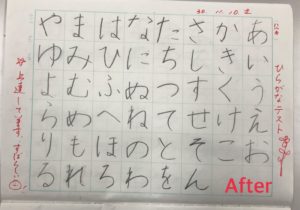 ひらがなテスト
あいうえお
かきくけこ
さしすせそん
たちつてとを
なにぬねのわ
はひふへほろ
まみむめもれ
やゆよらりる
上達してます すばらしい
After